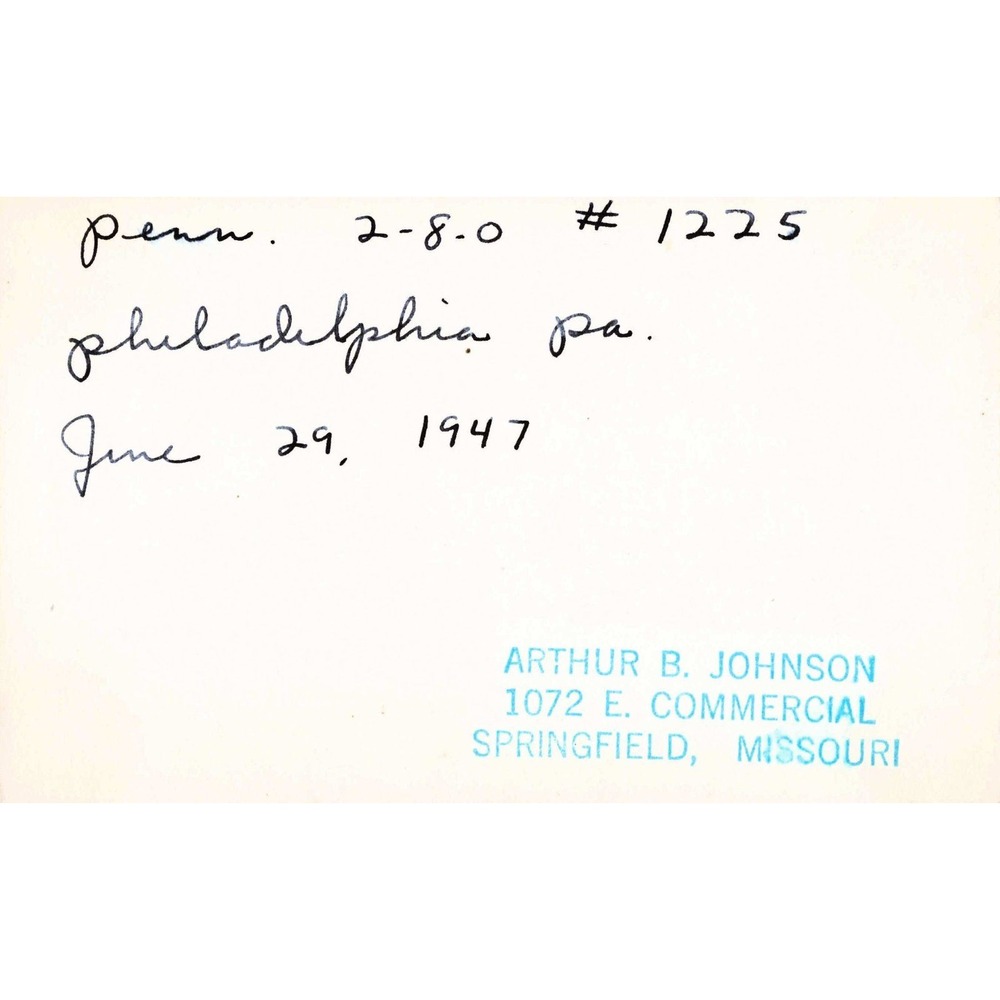 penn. 2-8-0 # 1225
philadelphia pa.
June 29, 1947
ARTHUR B. JOHNSON
1072 E. COMMERCIAL
SPRINGFIELD, MISSOURI